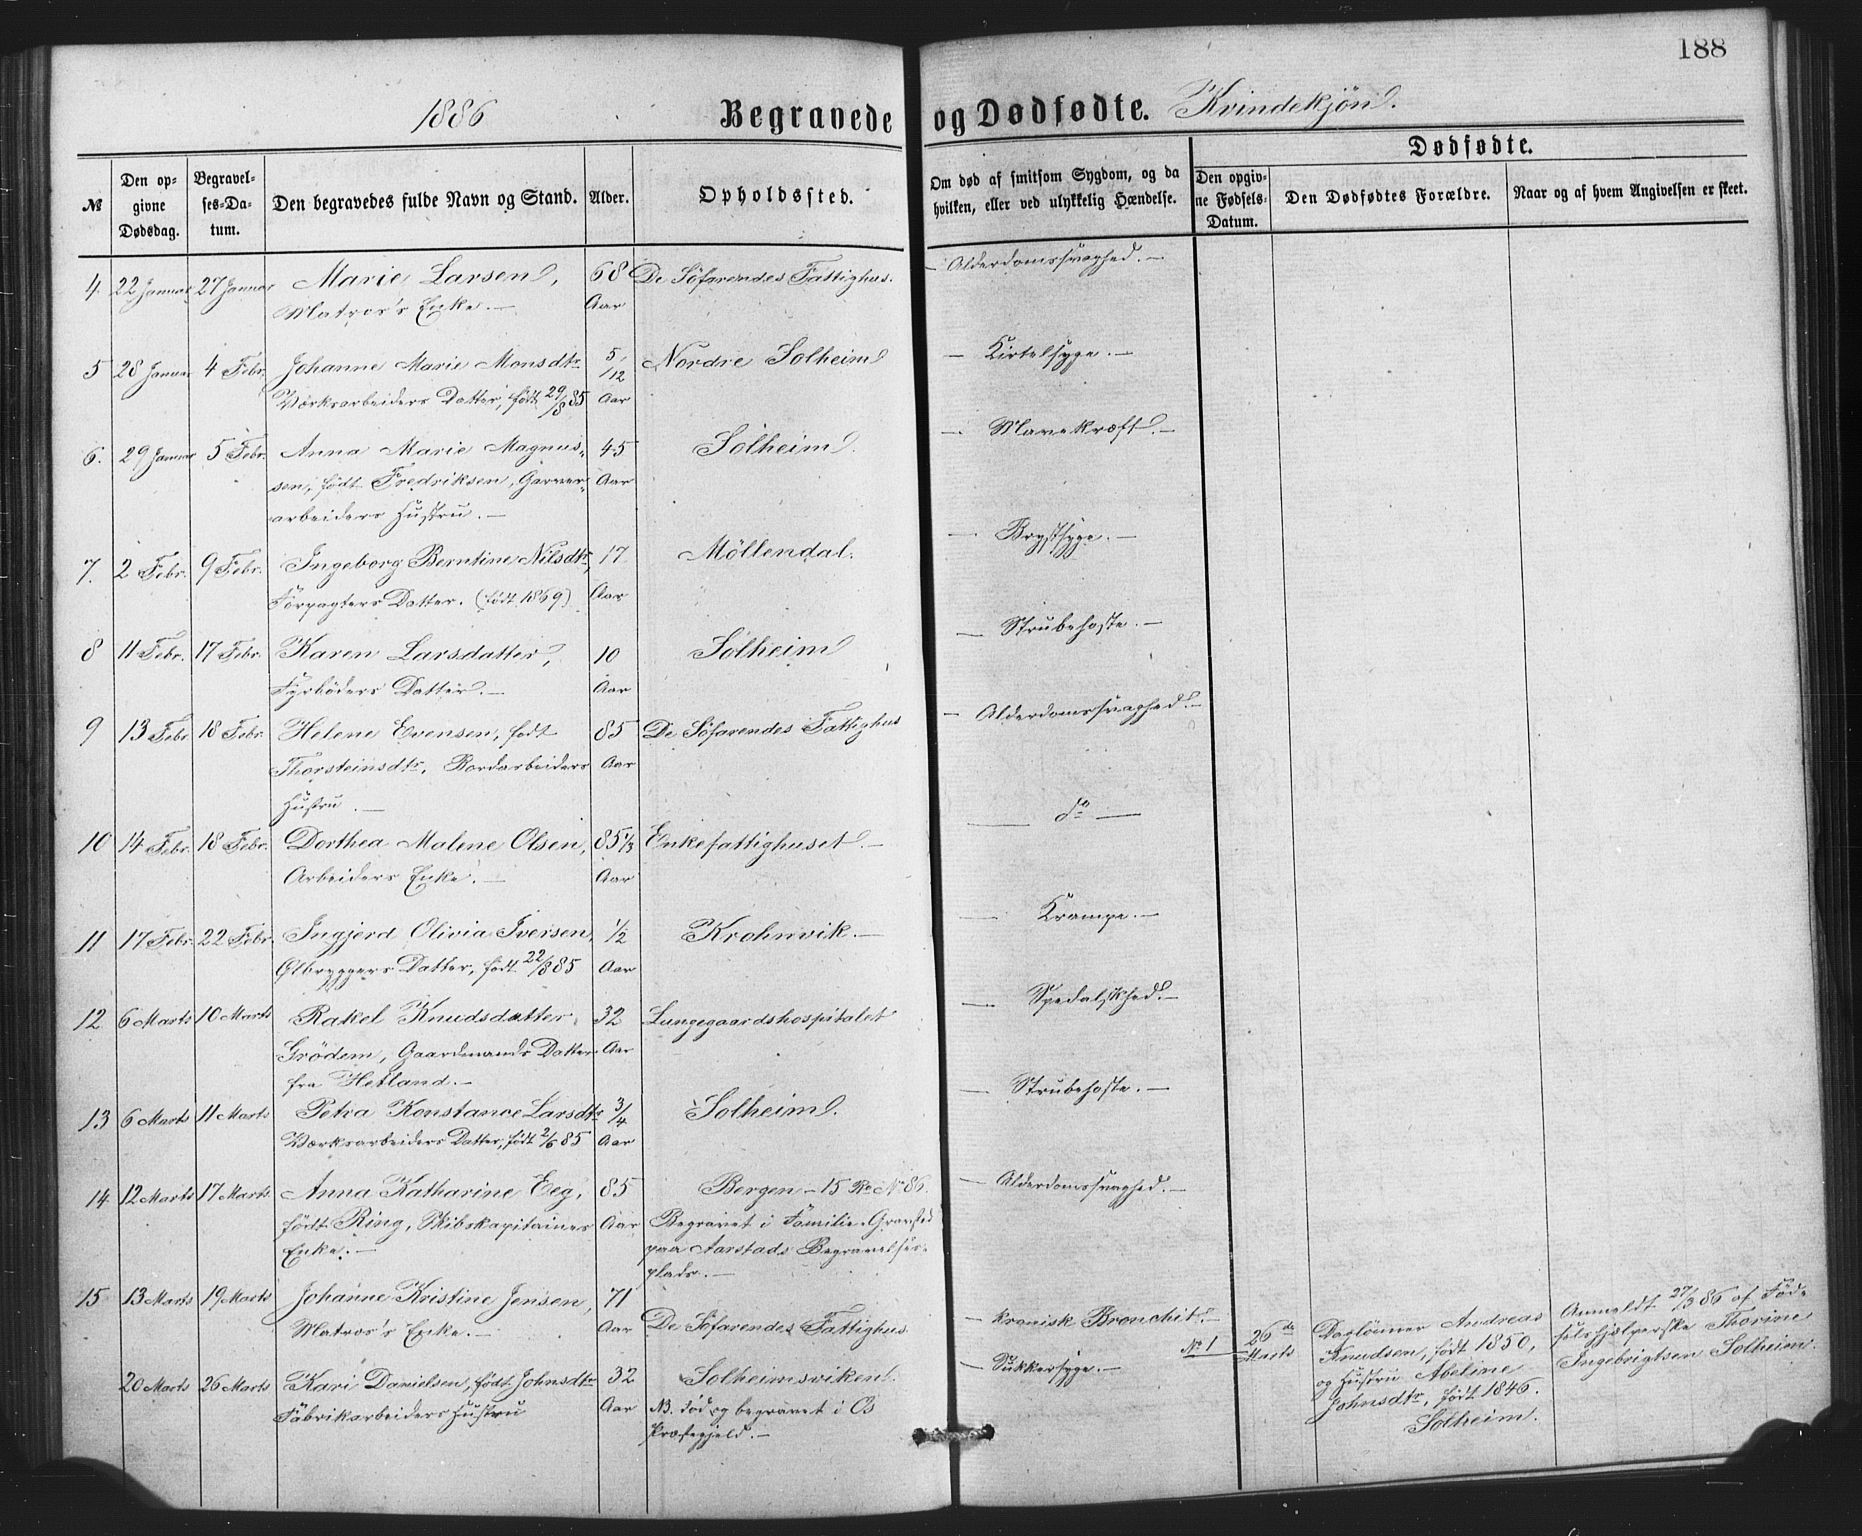 188
1886 Begravede og Dødfødte. Kvindekjøn.
№
Den opgivne Dødsdag.
Begravelses-Datum.
Den begravedes fulde Navn og Stand.
Alder.
Opholdssted.
Om død af smitsom Sygdom, og da hvilken, eller ved ulykkelig Hændelse.
Dødfødte.
Den opgivne Fødsels-Datum.
Den Dødfødtes Forældre.
Naar og af hvem Angivelsen er skeet.
4. 22 Januar 27 Januar Marie Larsen, 68 De Söfarendes Fattighus. — Alderdomssvaghed. —
Matros's Enke. — Aar
5 28 Januar 4 Febr. Johanne Marie Monsdtr 5/12 Nordre Solheim — Kirtelsyge. —
Værksarbeiders Datter, født 29/8 85 Aar
6. 29 Januar 5 Febr. Anna Marie Magnus- 45 Solheim. — Mavekræft. —
sen, født Fredriksen, Garver- Aar
arbeiders Hustru. —
7. 2 Febr. 9 Febr. Ingeborg Berntine Nilsdtr, 17 Möllendal. — Brystsyge. —
Forpagters Datter. (født 1869) Aar
8 11 Febr. 17 Febr. Karen Larsdatter, 10 Solheim — Strubehoste. —
Fyrböders Datter. — Aar
9 13 Febr 18 Febr. Helene Evensen, født 85 De Söfarendes Fattighus — Alderdomssvaghed. —
Thorsteinsdtr, Bordarbeiders Aar
Hustru. —
10 14 Febr. 18 Febr. Dorthea Malene Olsen, 85 1/3 Enkefattighuset. — — do —
Arbeiders Enke. — Aar
11 17 Febr. 22 Febr. Ingjerd Olivia Iversen, 1/2 Krohnvik. — — Krampe. —
Ølbryggers Datter, født 22/8 85 Aar
12 6 Marts 10 Marts Rakel Knudsdatter 32 Lungegaardshospitalet — Spedalskhed. —
Grödem, Gaardmands Datter Aar
fra Hetland. —
13 6 Marts 11 Marts Petra Konstance Larsdtr 3/4 Solheim. — Strubehoste. —
Værksarbeiders Datter, født 2/6 85 Aar
14 12 Marts 17 Marts Anna Katharine Eeg, 85 Bergen – 15 Ro. No 86. — Alderdomssvaghed. —
født Ring, Skibskapitaines Aar Begravet i Familie-Gravsted
Enke. — paa Aarstads Begravelses-
plads. —
15 13 Marts 19 Marts Johanne Kristine Jensen, 71 De Söfarendes Fattighus — kronisk Bronchit. —
Matros's Enke. — Aar
20 Marts 26 Marts Kari Danielsen, født Johnsdtr 32 Solheimsviken. — Sukkersyge. —
Fabrikarbeiders Hustru Aar NB. død og begravet i Os
Præstegjeld. —
No 1 26de Marts
Daglönner Andreas
Knudsen, født 1850,
og Hustru Abeline
Johnsdtr, født 1846.
Solheim.
Anmeldt 27/3 86 af Fød-
selshjælperske Thorine
Ingebrigtsen Solheim.